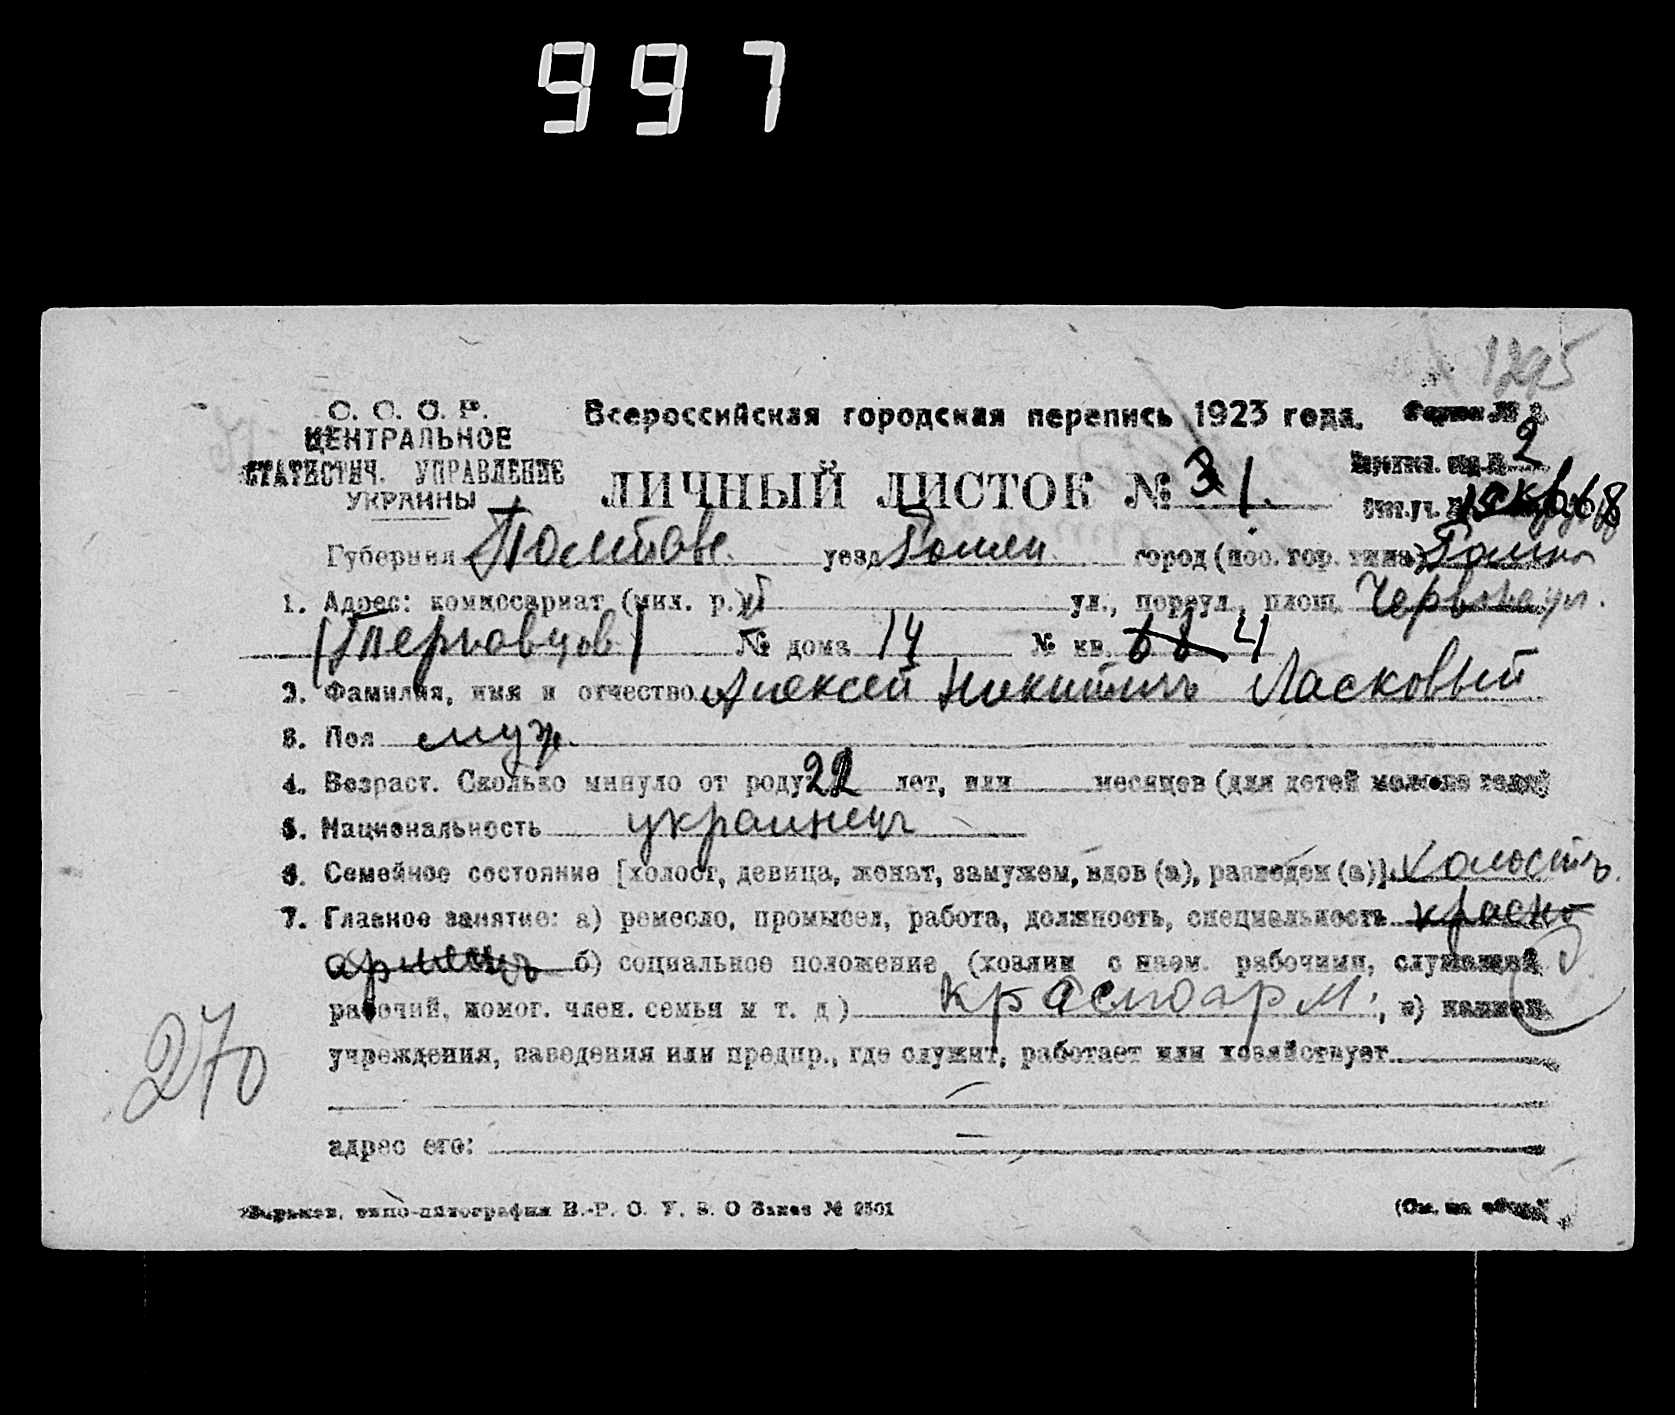 997
1295
С. С. С. Р.
ЦЕНТРАЛЬНОЕ
СТАТИСТИЧ. УПРАВЛЕНИЕ
УКРАИНЫ
Всероссийская городская перепись 1923 года.
2
ЛИЧНЫЙ ЛИСТОК № 1.
Губерния уезд город (пос. гор. типа)
1. Адрес: комиссариат (мил. р.) ул., переул., площ.
№ дома 14 № кв. 4
2. Фамилия, имя и отчество Алексей Никитичъ Ласковый
3. Пол муж.
4. Возраст. Сколько минуло от роду 22 лет, или месяцев (для детей моложе
5. Национальность украинецъ
6. Семейное состояние [холост, девица, женат, замужем, вдов (а), разведен (а)]. Холостъ.
7. Главное занятие: а) ремесло, промысел, работа, должность, специальность красно
армеецъ б) социальное положение (хозяин с наем. рабочими, служащий
рабочий, помог. член. семьи и т. д.) красноарм.,
учреждения, заведения или предпр., где служит, работает или хозяйствует
адрес его:
270
Харьков, типо-литография В.-Р. С. У. В. О Заказ № 2501
(См. на